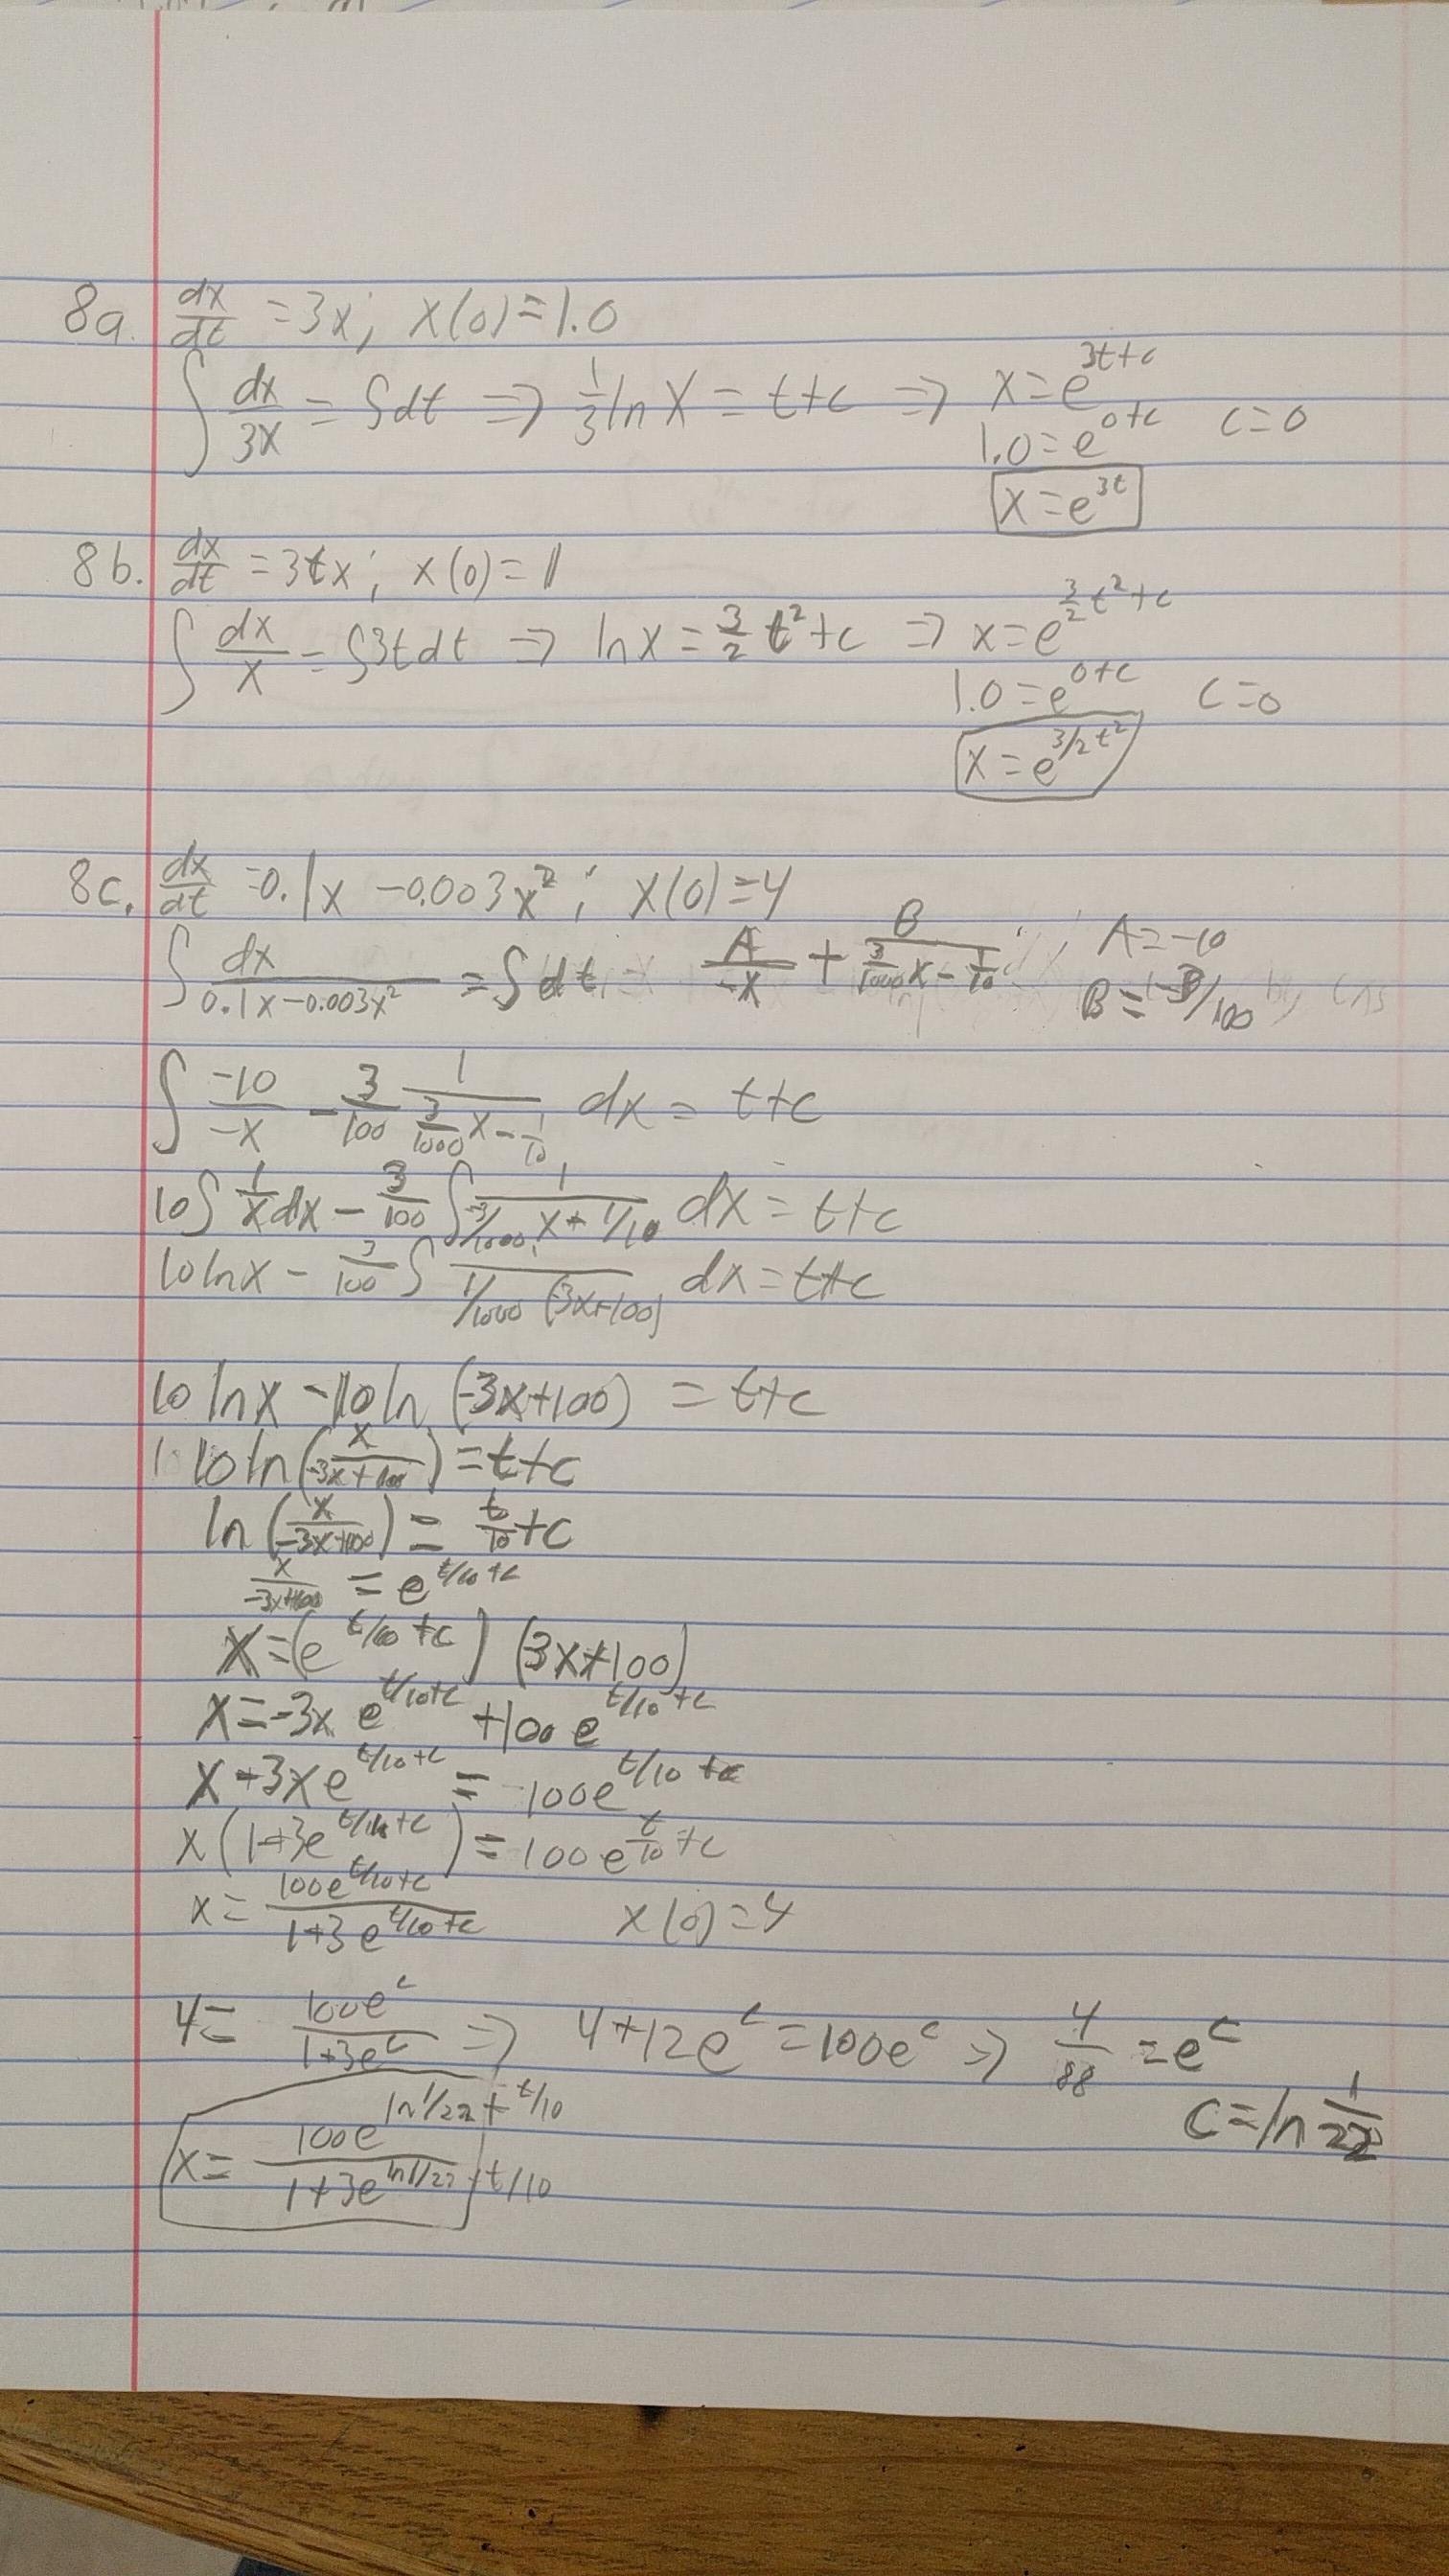 8a. dx/dt = 3x; x(0)=1.0
∫ dx/3x = ∫dt ⇒ 1/3 ln x = t+c ⇒ x=e^(3t+c)
1.0=e^(0+c) c=0
x=e^(3t)
8b. dx/dt = 3tx; x(0)=1
∫ dx/x = ∫3t dt ⇒ ln x = 3/2 t²+c ⇒ x=e^(3/2 t²+c)
1.0=e^(0+c) c=0
x=e^(3/2 t²)
8c. dx/dt =0.1x -0.003x²; x(0)=4
∫ dx/(0.1x-0.003x²) = ∫ dt A/-x + B/(3/1000 x - 1/10) ; A=-10
B=-3/100
∫ -10/-x - 3/100 1/(3/1000 x - 1/10) dx = t+c
10∫ 1/x dx - 3/100 ∫ 1/(-3/1000 x + 1/10) dx = t+c
10 ln x - 3/100 ∫ 1/(1/1000 (-3x+100)) dx = t+c
10 ln x - 10 ln (-3x+100) = t+c
10 ln(x/(-3x+100)) = t+c
ln(x/(-3x+100)) = t/10 +c
x/(-3x+100) = e^(t/10+c)
x=(e^(t/10+c)) (3x+100)
x=-3x e^(t/10+c) +100 e^(t/10+c)
x+3xe^(t/10+c) = 100e^(t/10+c)
x(1+3e^(t/10+c)) = 100e^(t/10+c)
x= 100e^(t/10+c)/(1+3e^(t/10+c)) x(0)=4
4= 100e^c/(1+3e^c) ⇒ 4+12e^c=100e^c ⇒ 4/88 =e^c
c=ln 1/22
x= 100e^(ln 1/22 + t/10)/(1+3e^(ln 1/22 + t/10))